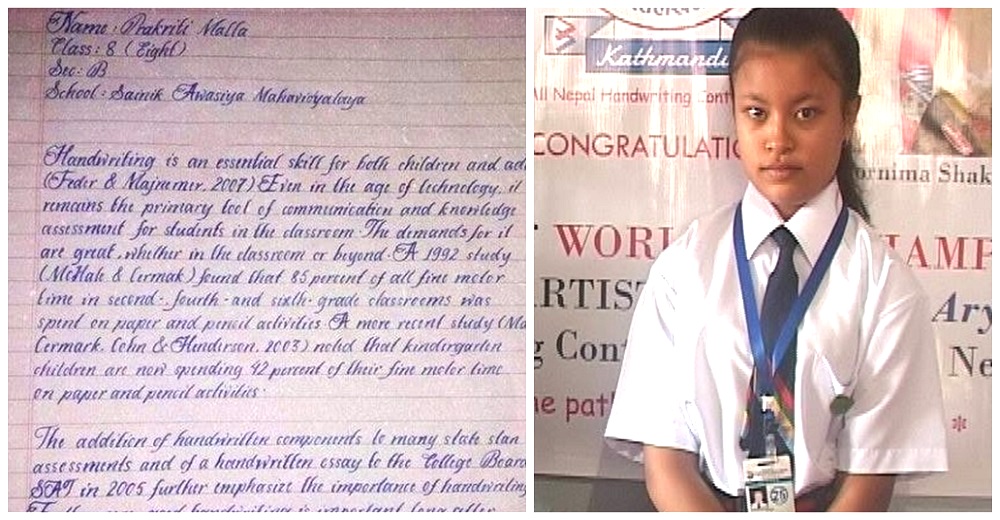 Name: Prakriti Malla
Class: 8 (Eight)
Sec: B
School: Sainik Awasiya Mahavidyalaya
Handwriting is an essential skill for both children and ad
(Feder & Majnemer, 2007) Even in the age of technology, it
remains the primary tool of communication and knowledge
assessment for students in the classroom. The demands for it
are great, whether in the classroom or beyond. A 1992 study
(McHale & Cermak) found that 85 percent of all fine motor
time in second-, fourth- and sixth-grade classrooms was
spent on paper and pencil activities. A more recent study (Ma
Cermark, Cohn & Henderson, 2003) noted that kindergarten
children are now spending 42 percent of their fine motor time
on paper and pencil activities.
The addition of handwritten components to many state stan
assessments and of a handwritten essay to the College Board
SAT in 2005 further emphasize the importance of handwriting
Kathmandu
All Nepal Handwriting Cont
CONGRATULATIO
ornima Shak
WOR
AMP
ARTIS
Ary
g Con
Ne
he pat
*